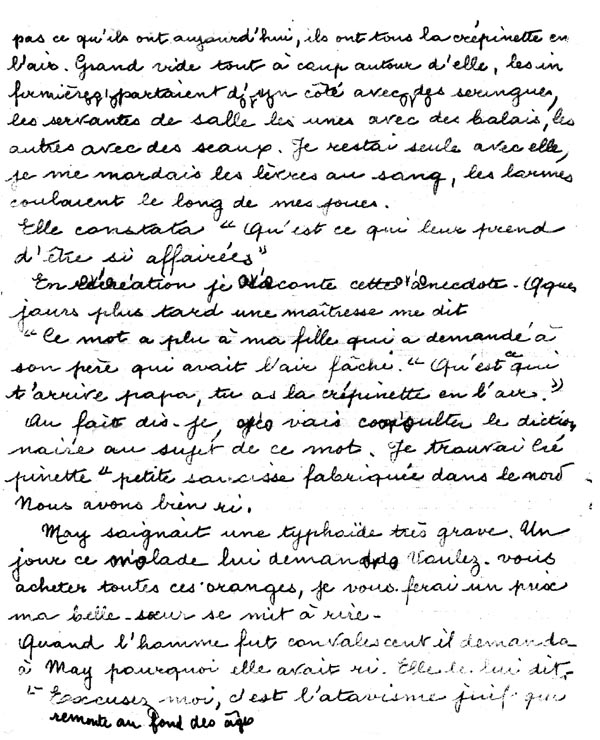 pas ce qu'ils ont aujourd'hui, ils ont tous la crépinette en
l'air. Grand vide tout à coup autour d'elle, les in
firmières partaient d'un côté avec des seringues,
les servantes de salle les unes avec des balais, les
autres avec des seaux. Je restai seule avec elle,
je me mordais les lèvres au sang, les larmes
coulaient le long de mes joues.
Elle constata "Qu'est ce qui leur prend
d'être si affairées"
En récréation je raconte cette anecdote - Qques
jours plus tard une maîtresse me dit
"Ce mot a plu à ma fille qui a demandé à
son père qui avait l'air fâché. "Qu'est ce qui
t'arrive papa, tu as la crépinette en l'air."
Au fait dis-je, je vais consulter le diction
naire au sujet de ce mot. Je trouvai Cré
pinette "petite saucisse fabriquée dans le nord
Nous avons bien ri.
May soignait une typhoïde très grave. Un
jour ce malade lui demanda Voulez-vous
acheter toutes ces oranges, je vous ferai un prix
ma belle-sœur se mit à rire -
Quand l'homme fut convalescent il demanda
à May pourquoi elle avait ri. Elle le lui dit -
"Excusez moi, c'est l'atavisme juif qui
remonte au fond des âges